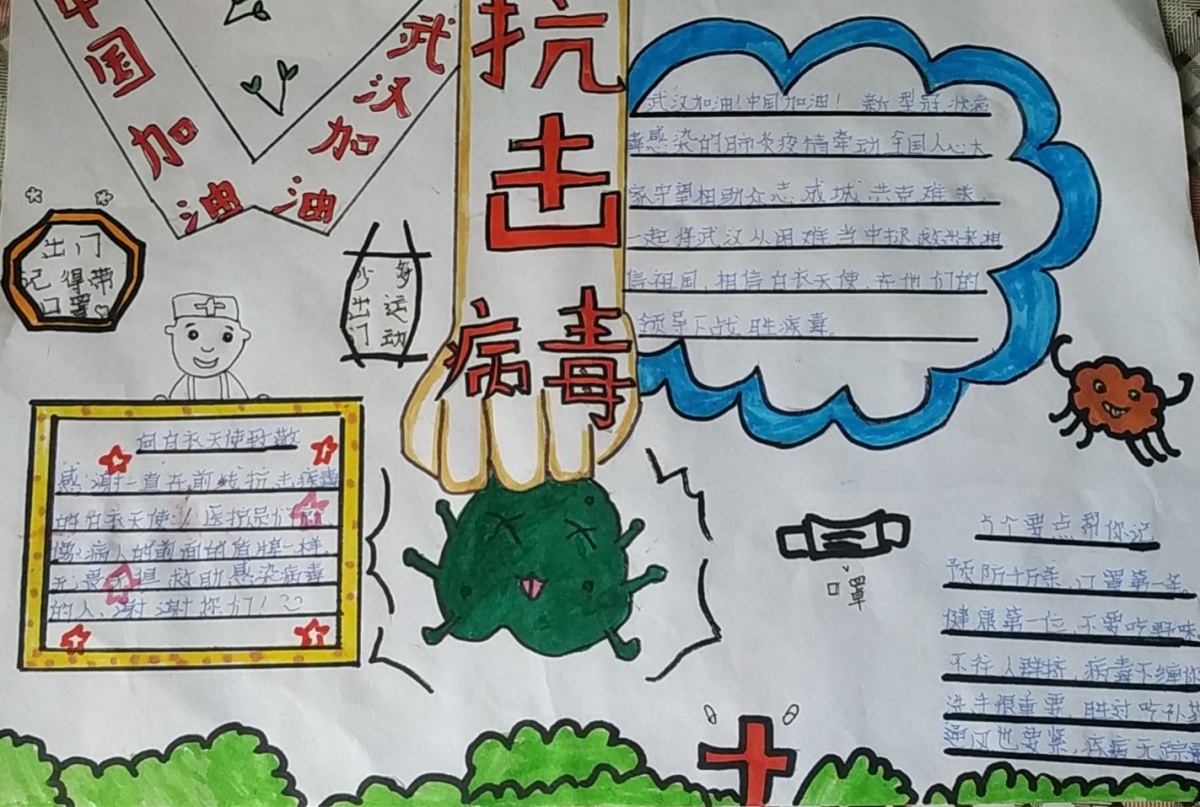 中国加油
武汉加油
抗击病毒
武汉加油！中国加油！ 新型冠状病
毒感染的肺炎疫情牵动全国人心大
家守望相助众志成城共克难关
一起将武汉从困难当中拯救出来相
信祖国，相信白衣天使，在他们的
领导下战胜病毒。
出门
记得带
口罩
多运动
少出门
向白衣天使致敬
感谢一直在前线抗击病毒
的白衣天使 医护员们
病人的前面的盾牌一样
无畏无惧救助感染病毒
的人，谢谢你们！
口罩
5个要点帮你记
预防千万条，口罩第一条。
健康第一位，不要吃野味
不往人群挤，病毒不缠你
洗手很重要，胜过吃补
通风也要紧，疾病无踪